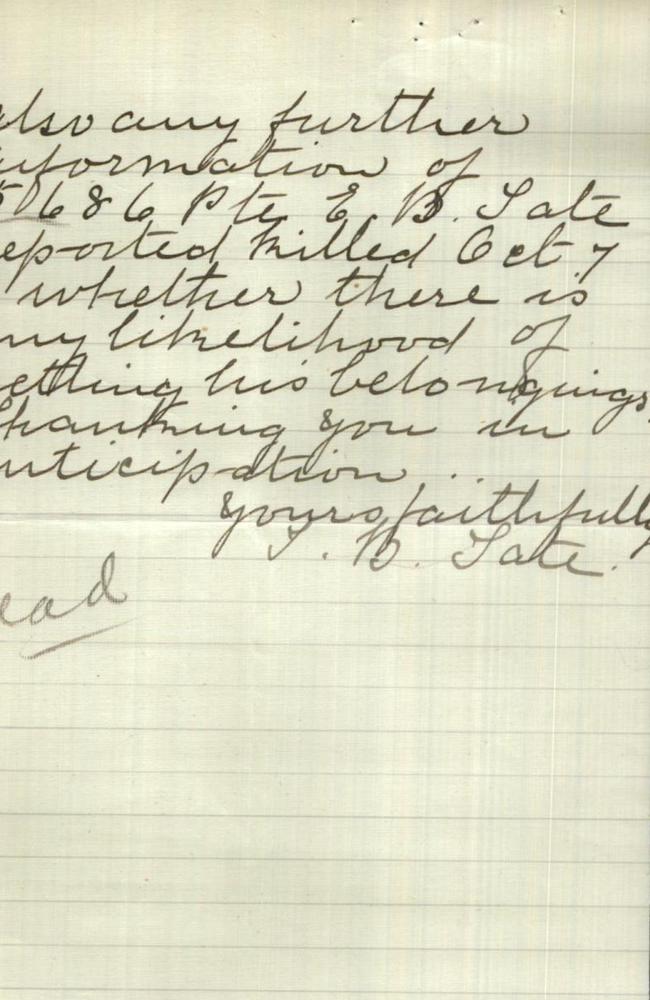 also any further
information of
5686 Pte E. B. Tate
reported killed Oct. 7
whether there is
any likelihood of
getting his belongings.
Thanking you in
anticipation
Yours faithfully
T. B. Tate.